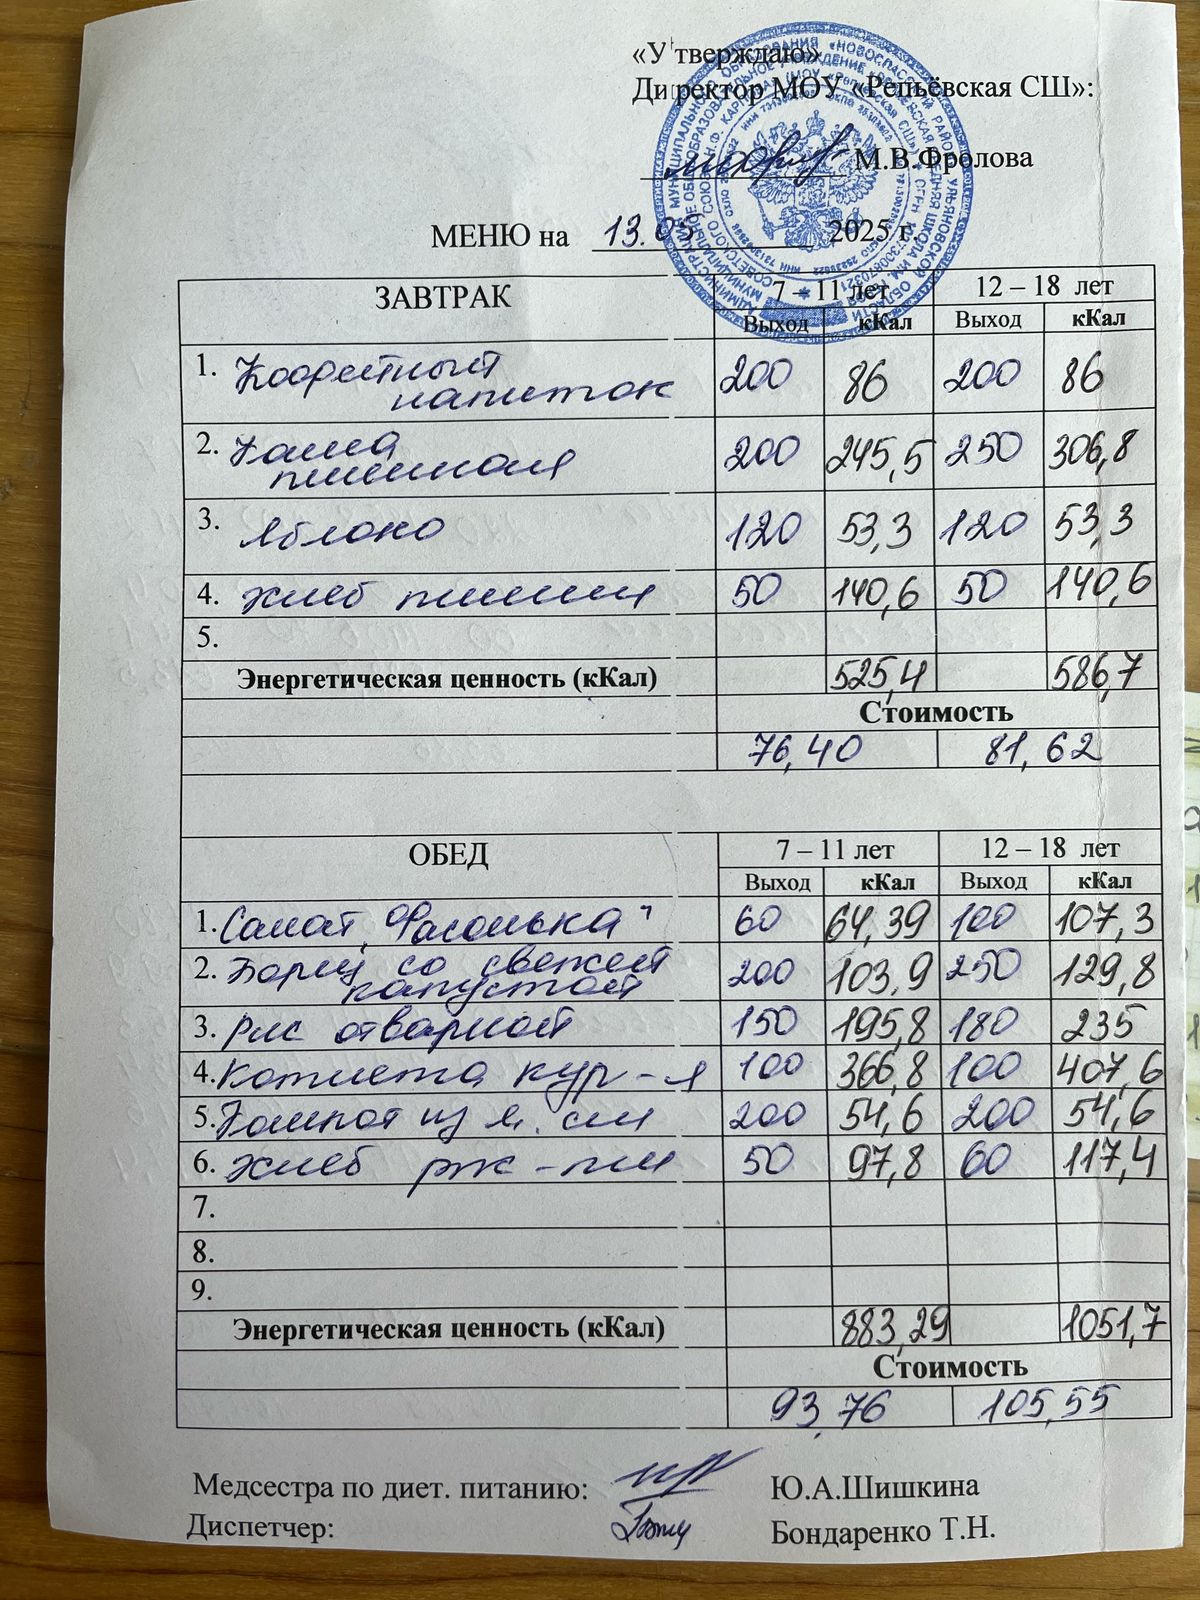 «Утверждаю»
Директор МОУ «Репьёвская СШ»:
М.В.Фролова
МЕНЮ на 13.05 2025 г.
ЗАВТРАК 7 – 11 лет 12 – 18 лет
Выход кКал Выход кКал
1. Кофейный
напиток 200 86 200 86
2. Каша
пшенная 200 245,5 250 306,8
3. Яблоко 120 53,3 120 53,3
4. Хлеб пшени 50 140,6 50 140,6
5.
Энергетическая ценность (кКал) 525,4 586,7
Стоимость
76,40 81,62
ОБЕД 7 – 11 лет 12 – 18 лет
Выход кКал Выход кКал
1. Салат "Фасолька" 60 64,39 100 107,3
2. Борщ со свежей
капустой 200 103,9 250 129,8
3. Рис отварной 150 195,8 180 235
4. Котлета кур-я 100 366,8 100 407,6
5. Компот из я. см 200 54,6 200 54,6
6. Хлеб рж-пш 50 97,8 60 117,4
7.
8.
9.
Энергетическая ценность (кКал) 883,29 1051,7
Стоимость
93,76 105,55
Медсестра по диет. питанию: Ю.А.Шишкина
Диспетчер: Бондаренко Т.Н.